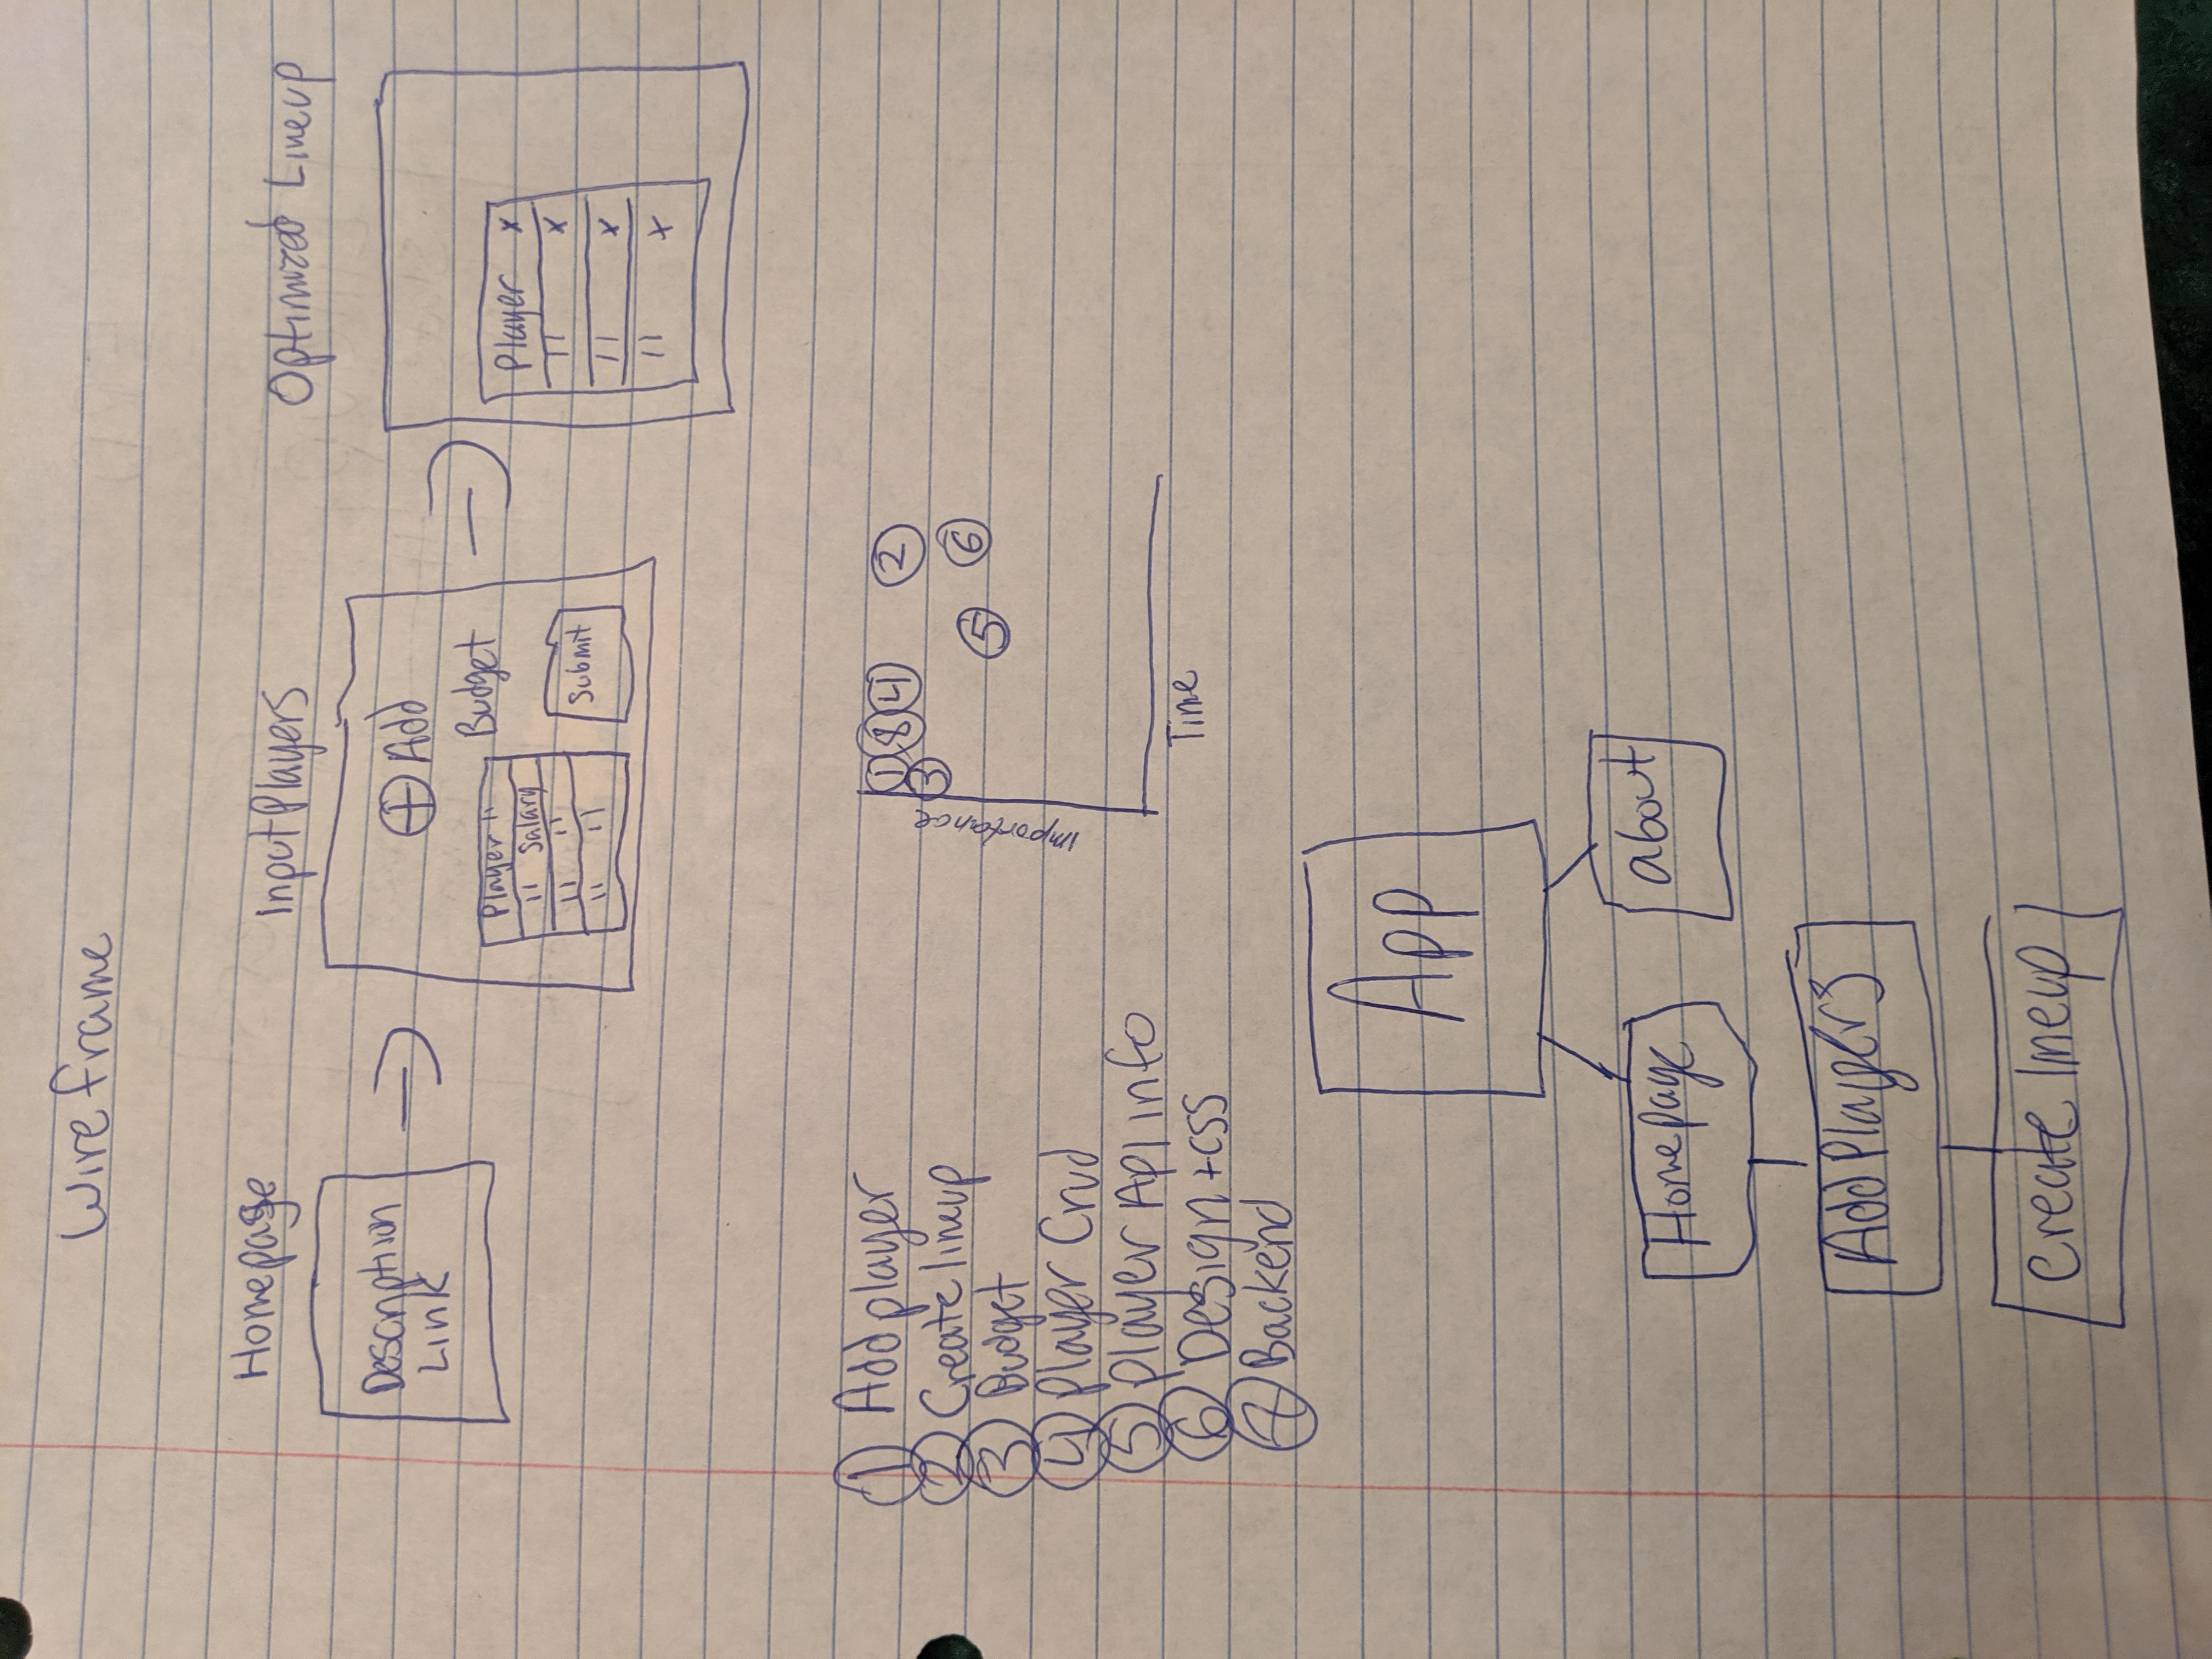 Wireframe
Homepage
Description
Link
Input Players
⊕ Add
Budget
Player "
" Salary
" "
" "
Submit
Optimized Lineup
Player x
" x
" x
" x
① Add player
② Create lineup
③ Budget
④ Player Crud
⑤ Player API info
⑥ Design + css
⑦ Backend
① ⑧ ④ ②
③
⑤ ⑥
Importance
Time
App
Homepage
about
Add Players
Create lineup